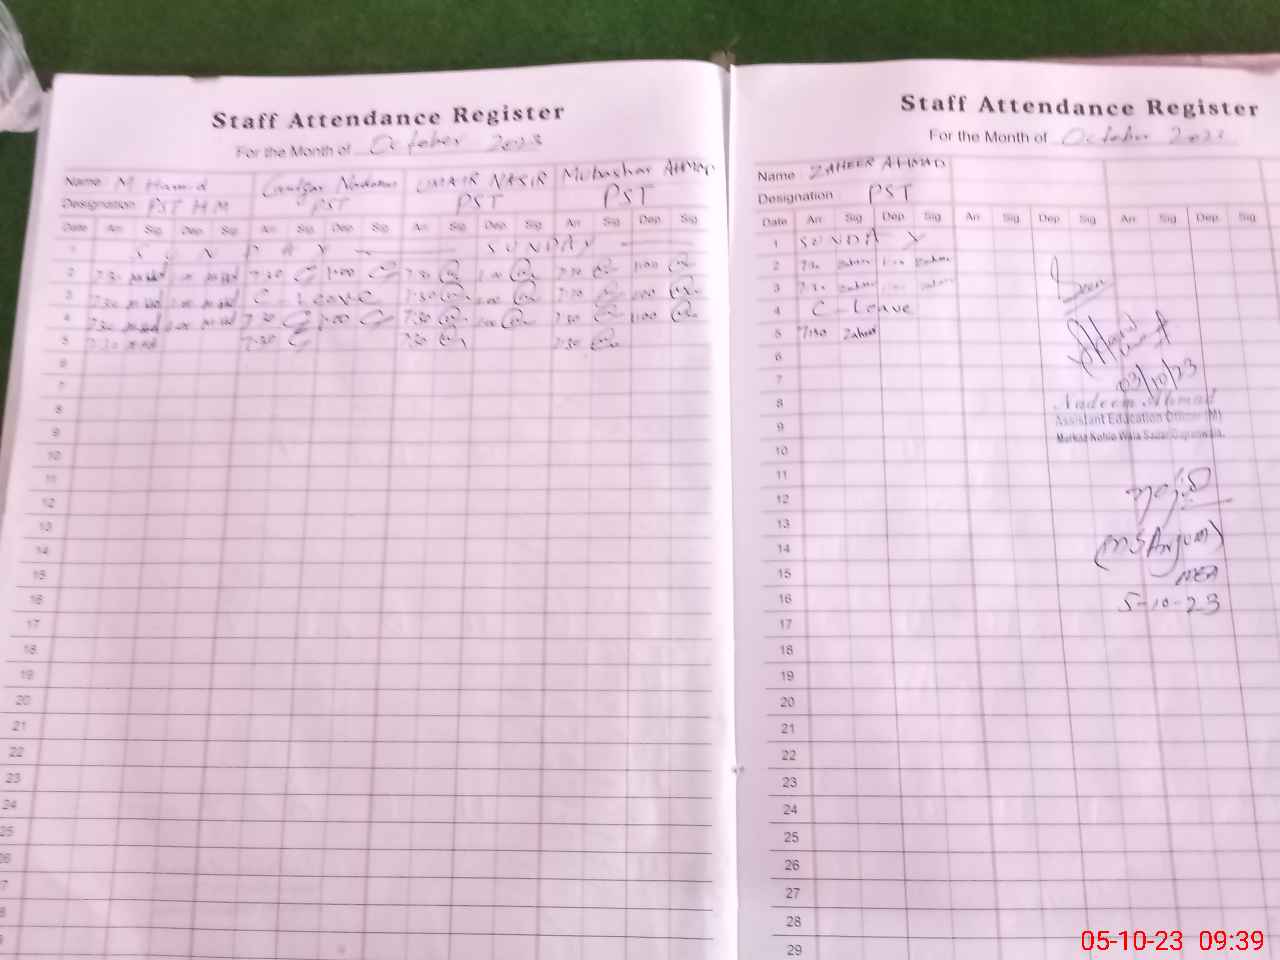 Staff Attendance Register
For the Month of October 2023
Name M Hamid UMAIR NASIR Mubashar AHMAD
Designation PST HM PST PST PST
Date Arr. Sig. Dep. Sig. Arr. Sig. Dep. Sig. Arr. Sig. Dep. Sig. Arr. Sig. Dep. Sig.
1 SUNDAY SUNDAY
2 7:30 1:00 7:30 1:00 7:30 1:00 7:30 1:00
3 7:30 1:00 C - Leave 7:30 1:00 7:30 1:00
4 7:30 1:00 7:30 1:00 7:30 1:00 7:30 1:00
5 7:30 7:30 7:30 7:30
6
7
8
9
10
11
12
13
14
15
16
17
18
19
20
21
22
23
24
25
Staff Attendance Register
For the Month of October 2023
Name ZAHEER AHMAD
Designation PST
Date Arr. Sig. Dep. Sig. Arr. Sig. Dep. Sig. Arr. Sig. Dep. Sig.
1 SUNDAY
2 7:30 Zaheer 1:00 Zaheer
3 7:30 Zaheer 1:00 Zaheer
4 C - Leave
5 7:30 Zaheer
6
7
03/10/23
8 Nadeem Ahmad
9 Assistant Education Officer (M)
Markaz Kohlo Wala Sadar Gujranwala.
10
11
12
13
14 (M S Anjum)
15 MEA
16 5-10-23
17
18
19
20
21
22
23
24
25
26
27
28
29
05-10-23 09:39